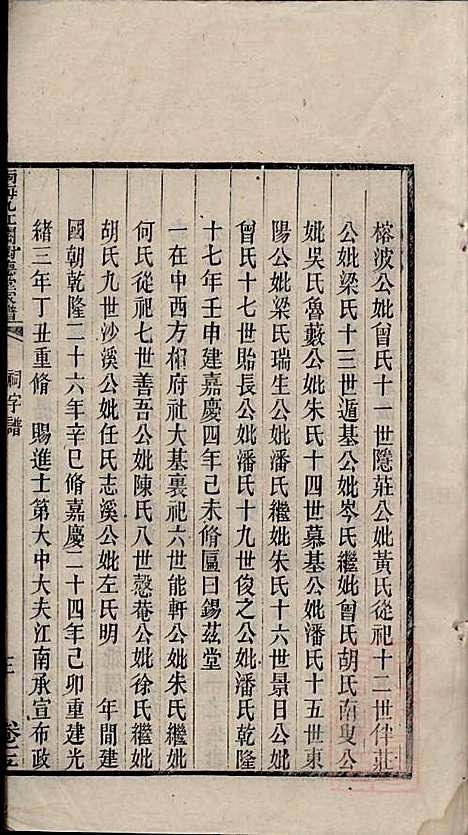 榕波公妣曾氏十一世隱莊公妣黃氏從祀十二世伴莊
公妣梁氏十三世遁基公妣岑氏繼妣曾氏胡氏南叟公
妣吳氏魯藪公妣朱氏十四世慕基公妣潘氏十五世東
陽公妣梁氏瑞生公妣潘氏繼妣朱氏十六世景日公妣
曾氏十七世貽長公妣潘氏十九世俊之公妣潘氏乾隆
十七年壬申建嘉慶四年己未脩匾曰錫茲堂
一在中西方相府社大基裏祀六世能軒公妣朱氏繼妣
何氏從祀七世善吾公妣陳氏八世愨菴公妣徐氏繼妣
胡氏九世沙溪公妣任氏志溪公妣左氏明　年間建
國朝乾隆二十六年辛巳脩嘉慶二十四年己卯重建光
緒三年丁丑重脩　賜進士第大中大夫江南承宣布政
祠宇譜
三
卷